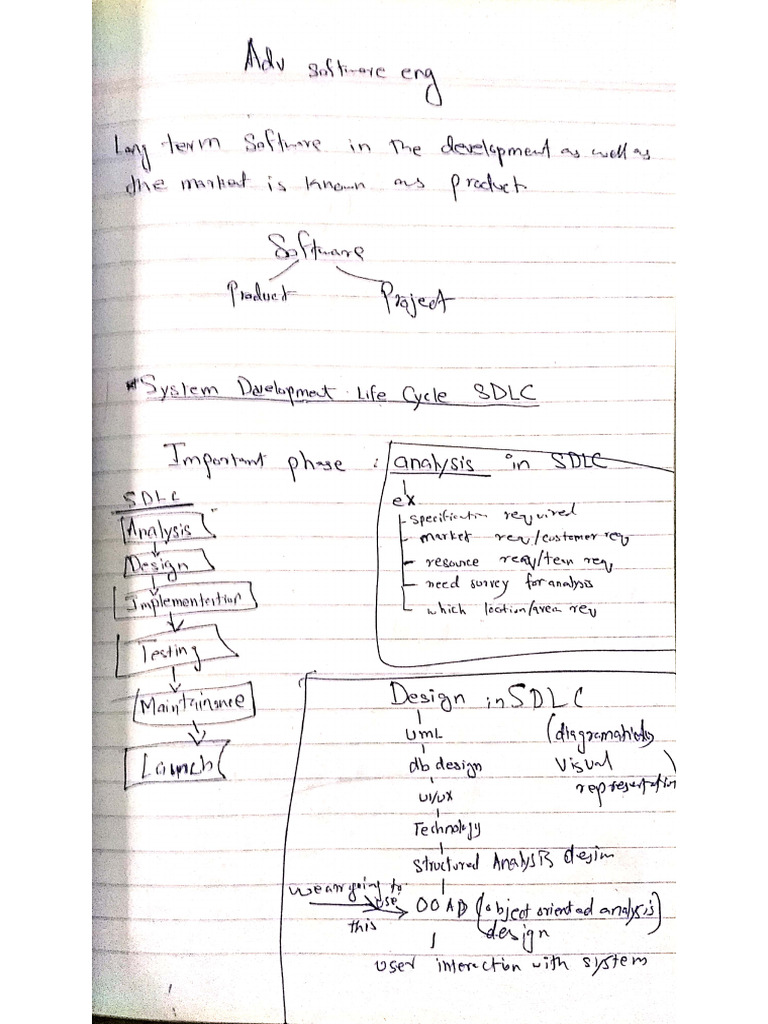 Adv software eng
Long term Software in the development as well as
the market is known as product
Software
Product Project
*System Development Life Cycle SDLC
Important phase : analysis in SDLC
SDLC
Analysis
Design
Implementation
Testing
Maintainance
Launch
ex
specification required
market req/customer req
resource req/team req
need survey for analysis
which location/area req
Design in SDLC
UML (diagramatically
db design visual
UI/UX representation
Technology
Structured Analysis design
we are going to use this
OOAD (object oriented analysis)
design
user interaction with system